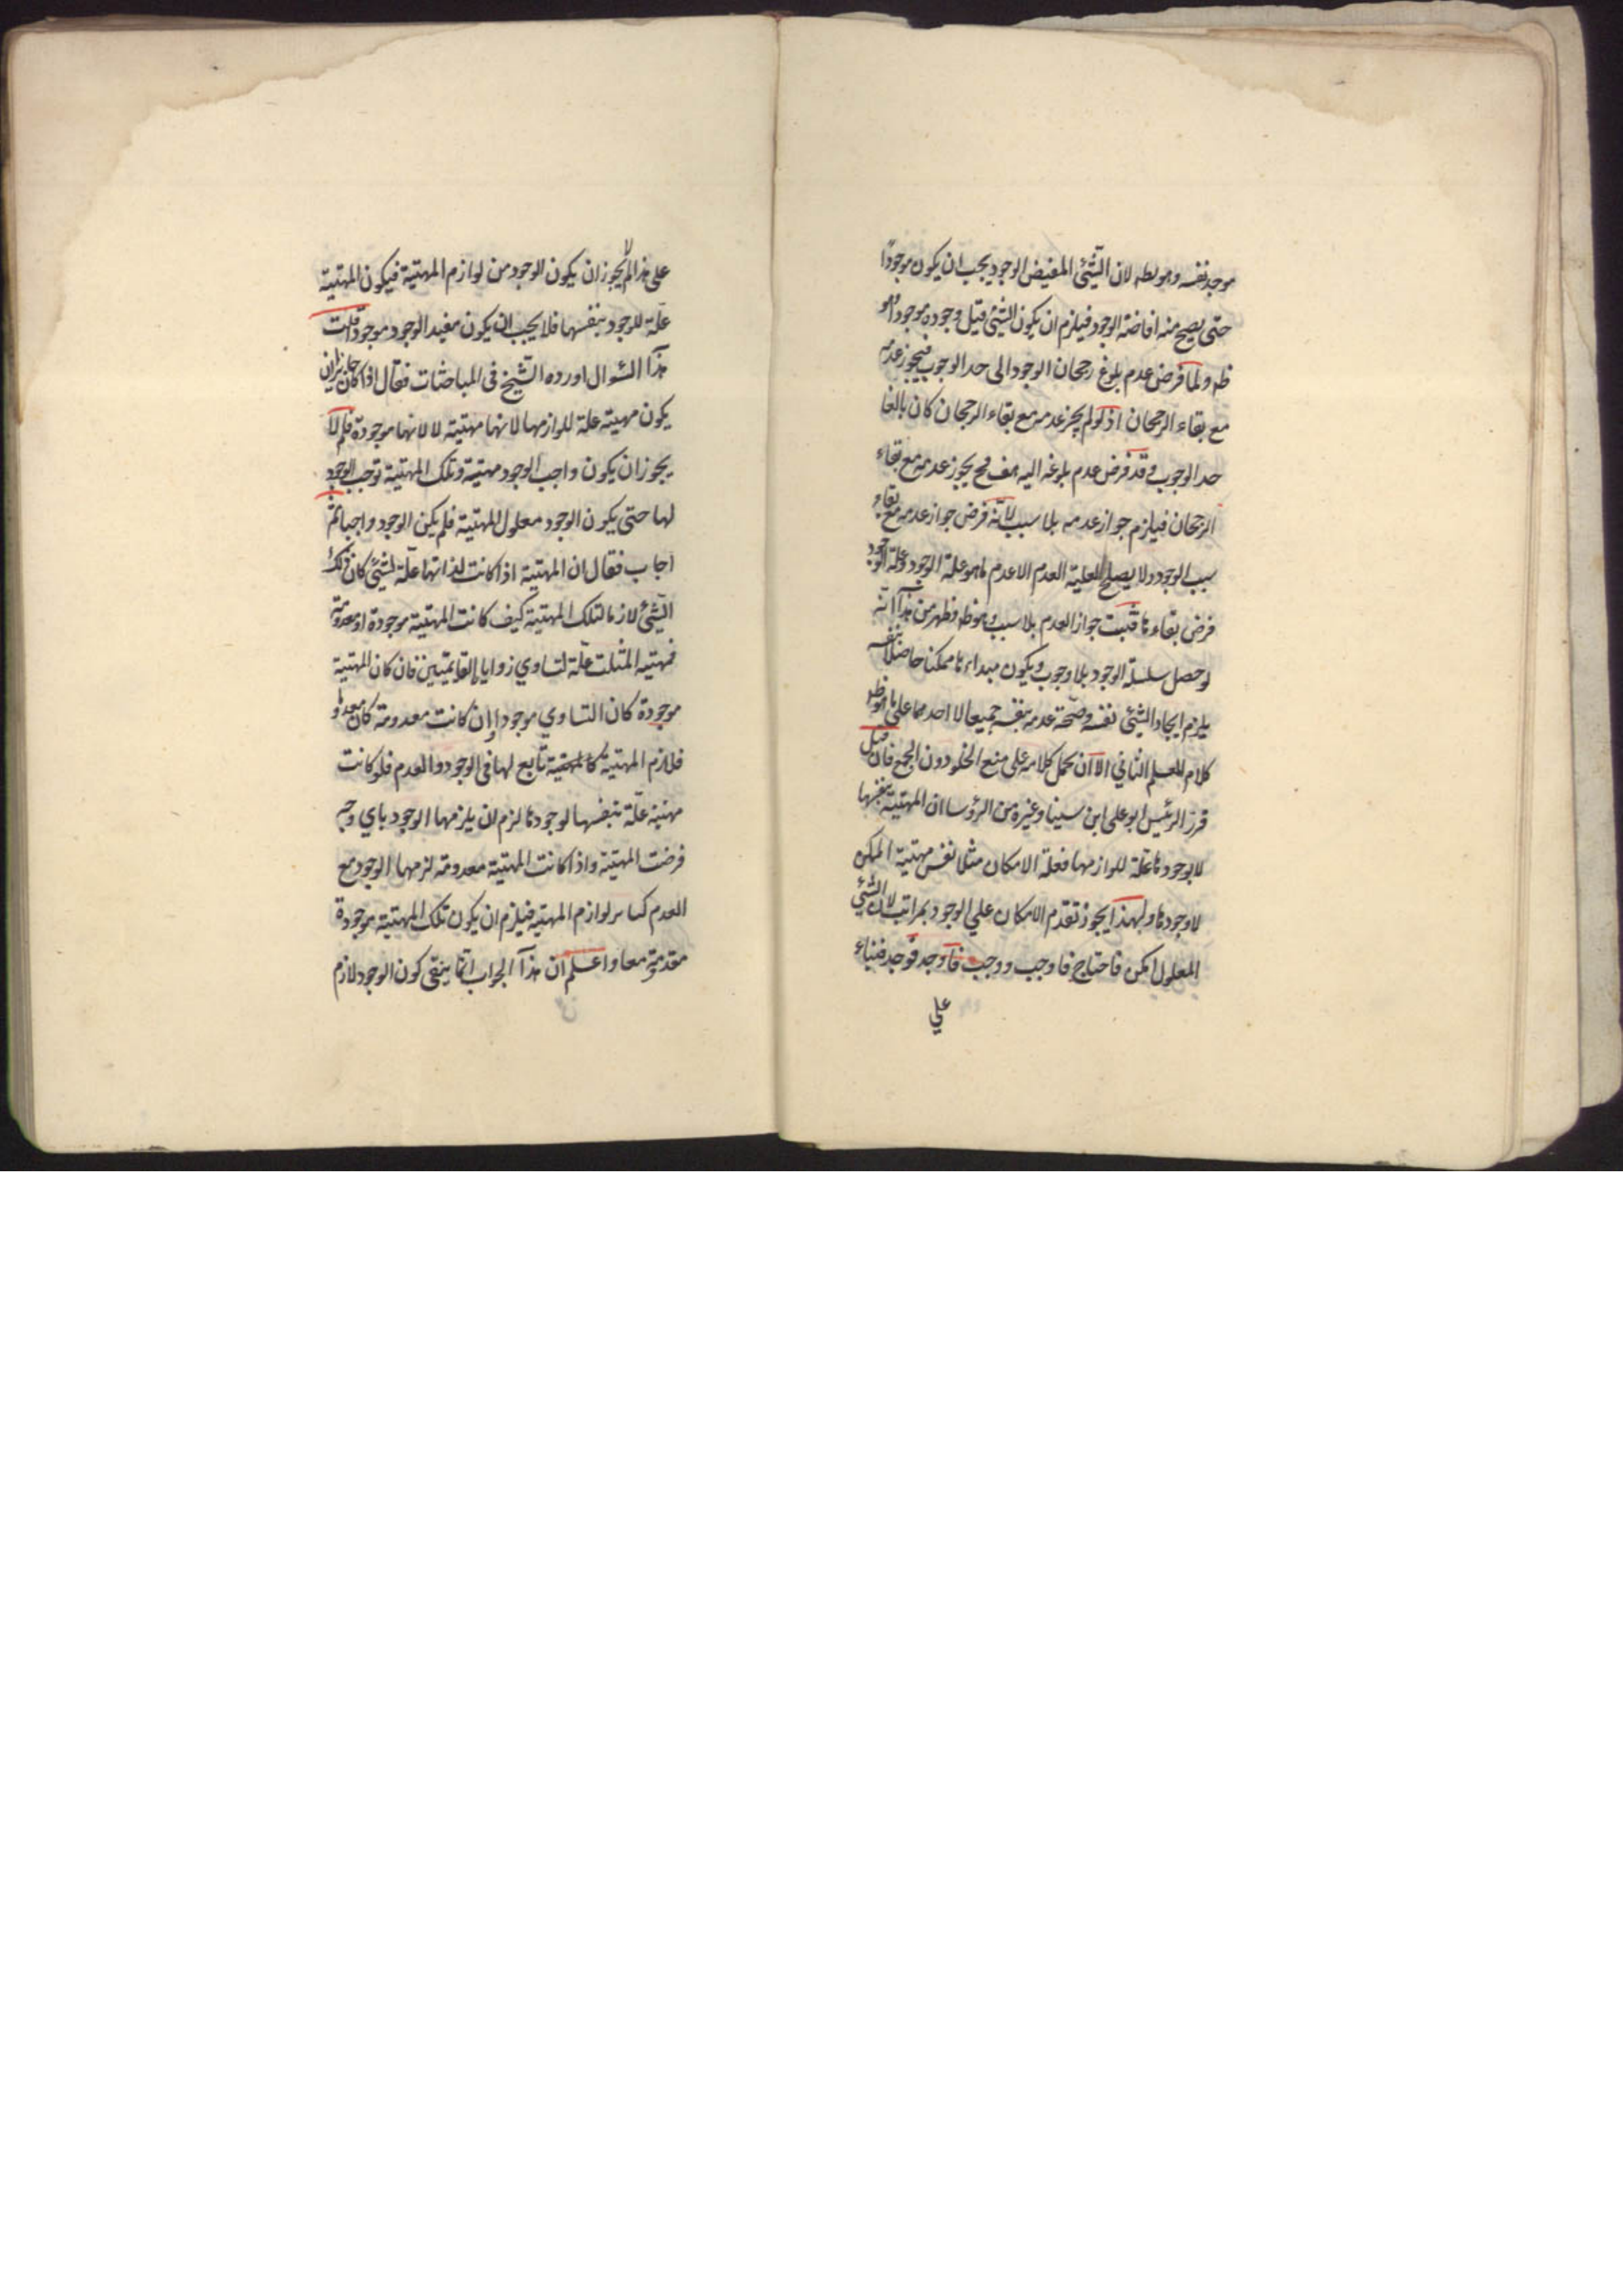 موجد نفسه وهو بط لان الشّئ المفيض الوجود يجب ان يكون موجودًا
حتى يصح منه افاضة الوجود فيلزم ان يكون الشئ قبل وجوده موجودا وهو
ظ ولما فرض عدم بلوغ رجحان الوجود الى حد الوجوب فيجوز عدمه
مع بقاء الرجحان اذ لو لم يجز عدمه مع بقاء الرجحان كان بالغا
حد الوجوب وقد فرض عدم بلوغه اليه هف فح يجوز عدمه مع بقاء
الرجحان فيلزم جواز عدمه بلا سبب لانّه فرض جواز عدمه مع بقاء
سبب الوجود ولا يصلح لعلية العدم الا عدم ما هو علة الوجود وعلة الوجود
فرض بقاءها فثبت جواز العدم بلا سبب وهو ظ فظهر من هذا انّه
لو حصل سلسلة الوجود بلا وجوب ويكون مبداءها ممكنا حاصلا بنفسه
يلزم ايجاد الشئ نفسه وصحّة عدمه بنفسه جميعا لا احدهما على ما هو ظ
كلام المعلم الثاني الا ان يحمل كلامه على منع الخلو دون الجمع فان قيل
قرر الرئيس ابو على ابن سينا وغيره من الرؤسا ان المهيّة بنفسها
لا بوجودها علّة للوازمها فعلة الامكان مثلا نفس مهيّة الممكن
لا وجودها ولهذا يجوز تقدم الامكان علي الوجود بمراتب لان الشئ
المعلول امكن فاحتاج فاوجب ووجب فاوجد فوجد فبناء
علي
على هذا لم لا يجوز ان يكون الوجود من لوازم المهيّة فيكون المهيّة
علّة للوجود بنفسها فلا يجب ان يكون مفيد الوجود موجودا قلت
هذا السّوال اورده الشّيخ فى المباحثات فقال اذا كان جايزا ان
يكون مهيّة علة للوازمها لانها مهيّة لا لانها موجودة فلم لا
يجوز ان يكون واجب الوجود مهيّة وتلك المهيّة توجب الوجود
لها حتى يكون الوجود معلول المهيّة فلم يكن الوجود واجبا ثمّ
اجاب فقال ان المهيّة اذا كانت لذاتها علّة لشئ كان ذلك
الشّئ لازما لتلك المهيّة كيف كانت المهيّة موجودة او معدومة
فمهيّة المثلث علّة لتساوي زوايا لقايمتين فان كان المهيّة
موجودة كان التساوي موجودا وان كانت معدومة كان معدوما
فلازم المهيّة كالمهيّة تابع لها فى الوجود والعدم فلو كانت
مهيّة علّة بنفسها لوجودها لزم ان يلزمها الوجود باي وجه
فرضت المهيّة واذا كانت المهيّة معدومة لزمها الوجود مع
العدم كساير لوازم المهيّة فيلزم ان يكون تلك المهيّة موجودة
معدومة معا واعلم ان هذا الجواب انّما ينفى كون الوجود لازم